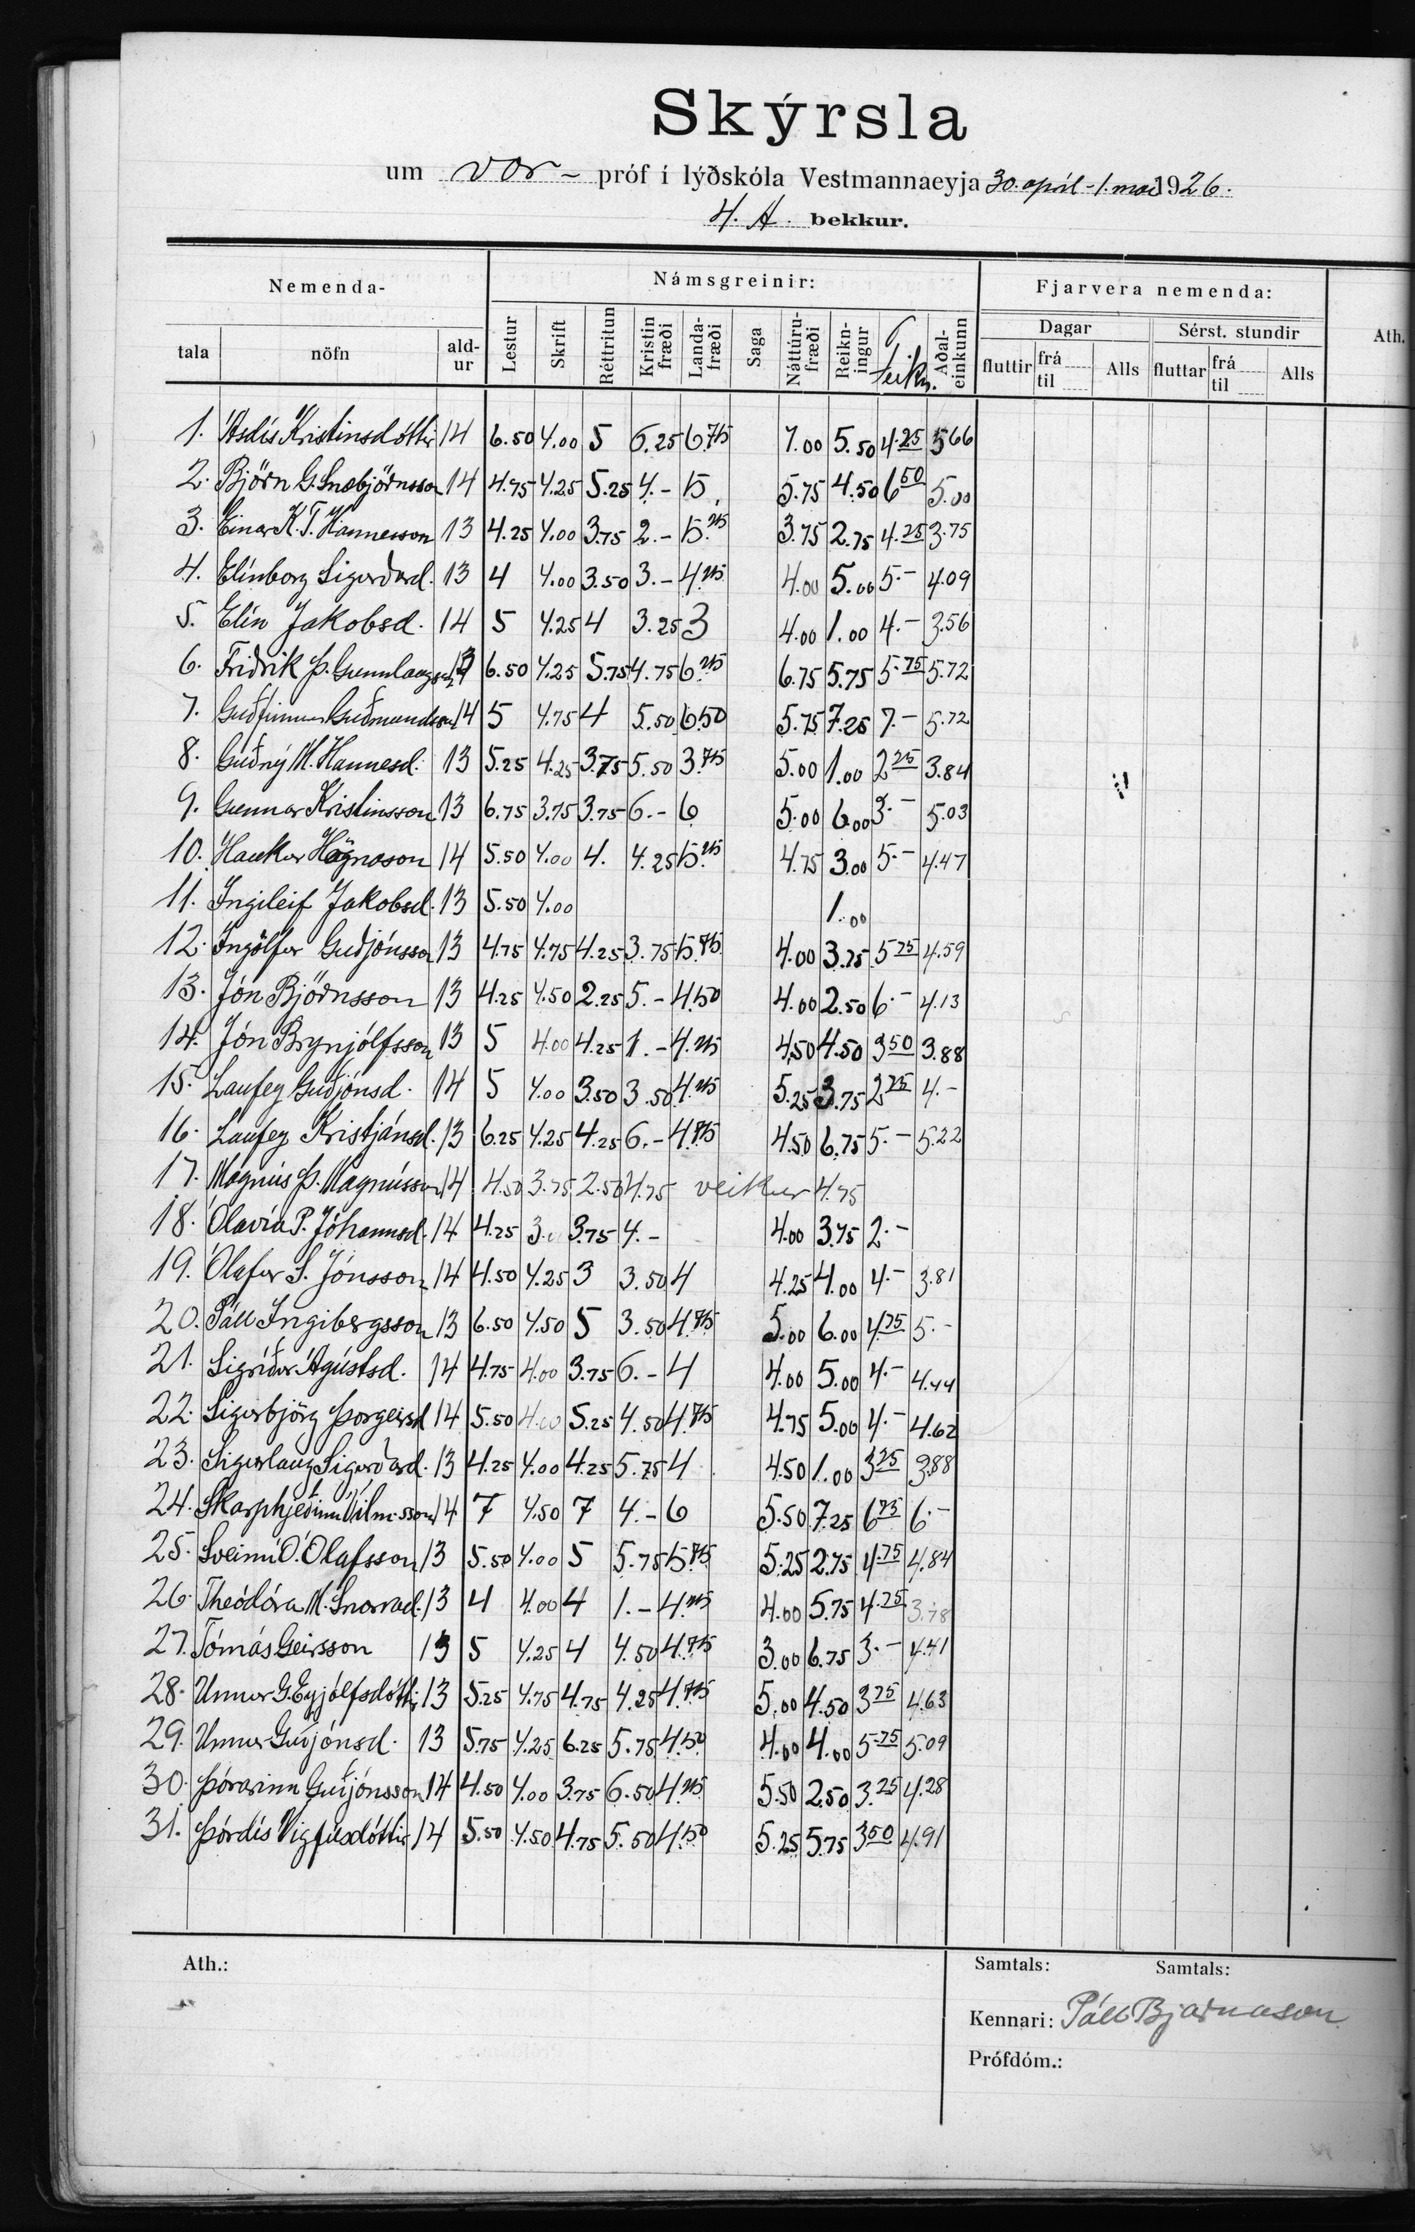 Skýrsla
um vor- próf í lýðskóla Vestmannaeyja 30. apríl - 1. maí 1926.
4. A. bekkur.
Nemenda- Námsgreinir: Fjarvera nemenda:
tala nöfn ald-ur Lestur Skrift Réttritun Kristin fræði Landa-fræði Saga Náttúru-fræði Reikn-ingur Teikn. Aðal-einkunn Dagar Sérst. stundir Ath.
fluttir frá til Alls fluttar frá til Alls
1. Ásdís Kristinsdóttir 14 6.50 4.00 5 6.25 6.75 7.00 5.50 4.25 5.66
2. Björn G. Snæbjörnsson 14 4.75 4.25 5.25 4.- 5. 5.75 4.50 6.50 5.00
3. Einar K. T. Hannesson 13 4.25 4.00 3.75 2.- 5.25 3.75 2.75 4.25 3.75
4. Elínborg Sigurðard. 13 4 4.00 3.50 3.- 4.25 4.00 5.00 5.- 4.09
5. Elín Jakobsd. 14 5 4.25 4 3.25 3 4.00 1.00 4.- 3.56
6. Friðrik Þ. Gunnlaugss. 13 6.50 4.25 5.75 4.75 6.25 6.75 5.75 5.75 5.72
7. Guðfinnur Guðmundsson 14 5 4.75 4 5.50 6.50 5.75 7.25 7.- 5.72
8. Guðný M. Hannesd. 13 5.25 4.25 3.75 5.50 3.75 5.00 1.00 2.25 3.84
9. Gunnar Kristinsson 13 6.75 3.75 3.75 6.- 6 5.00 6.00 3.- 5.03
10. Haukur Högnason 14 5.50 4.00 4. 4.25 5.25 4.75 3.00 5.- 4.47
11. Ingileif Jakobsd. 13 5.50 4.00 1.00
12. Ingólfur Guðjónsson 13 4.75 4.75 4.25 3.75 5.75 4.00 3.75 5.75 4.59
13. Jón Björnsson 13 4.25 4.50 2.25 5.- 4.50 4.00 2.50 6.- 4.13
14. Jón Brynjólfsson 13 5 4.00 4.25 1.- 4.25 4.50 4.50 3.50 3.88
15. Laufey Guðjónsd. 14 5 4.00 3.50 3.50 4.25 5.25 3.75 2.25 4.-
16. Laufey Kristjánsd. 13 6.25 4.25 4.25 6.- 4.75 4.50 6.75 5.- 5.22
17. Magnús Þ. Magnússon 14 4.50 3.75 2.50 4.75 veikur 4.75
18. Ólavía P. Jóhannsd. 14 4.25 3. 3.75 4.- 4.00 3.75 2.-
19. Ólafur S. Jónsson 14 4.50 4.25 3 3.50 4 4.25 4.00 4.- 3.81
20. Páll Ingibergsson 13 6.50 4.50 5 3.50 4.75 5.00 6.00 4.75 5.-
21. Sigríður Ágústsd. 14 4.75 4.00 3.75 6.- 4 4.00 5.00 4.- 4.44
22. Sigurbjörg Þorgeirsd 14 5.50 4.00 5.25 4.50 4.75 4.75 5.00 4.- 4.62
23. Sigurlaug Sigurðard. 13 4.25 4.00 4.25 5.75 4 4.50 1.00 3.25 3.88
24. Skarphjeðinn Vilm.sson 14 7 4.50 7 4.- 6 5.50 7.25 6.75 6.-
25. Sveinn Ó. Ólafsson 13 5.50 4.00 5 5.75 5.75 5.25 2.75 4.75 4.84
26. Theódóra M. Snorrad. 13 4 4.00 4 1.- 4.25 4.00 5.75 4.25 3.78
27. Tómás Geirsson 13 5 4.25 4 4.50 4.75 3.00 6.75 3.- 4.41
28. Unnur G. Eyjólfsdóttir 13 5.25 4.75 4.75 4.25 4.75 5.00 4.50 3.75 4.63
29. Unnur Guðjónsd. 13 5.75 4.25 6.25 5.75 4.50 4.00 4.00 5.75 5.09
30. Þórarinn Guðjónsson 14 4.50 4.00 3.75 6.50 4.25 5.50 2.50 3.25 4.28
31. Þórdís Vigfúsdóttir 14 5.50 4.50 4.75 5.50 4.50 5.25 5.75 3.50 4.91
Ath.: Samtals: Samtals:
Kennari: Páll Bjarnason
Prófdóm.: